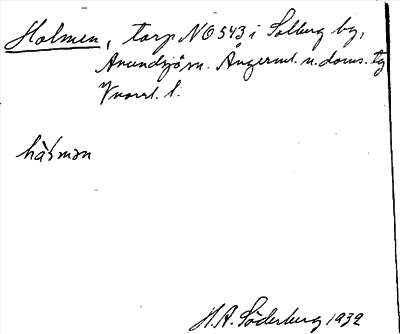 Holmen, torp NO 543 i Solberg by,
Anundsjö sn. Ångerml. n. doms. tg
V norrl. l.
hàlmən
H. A. Söderberg 1932